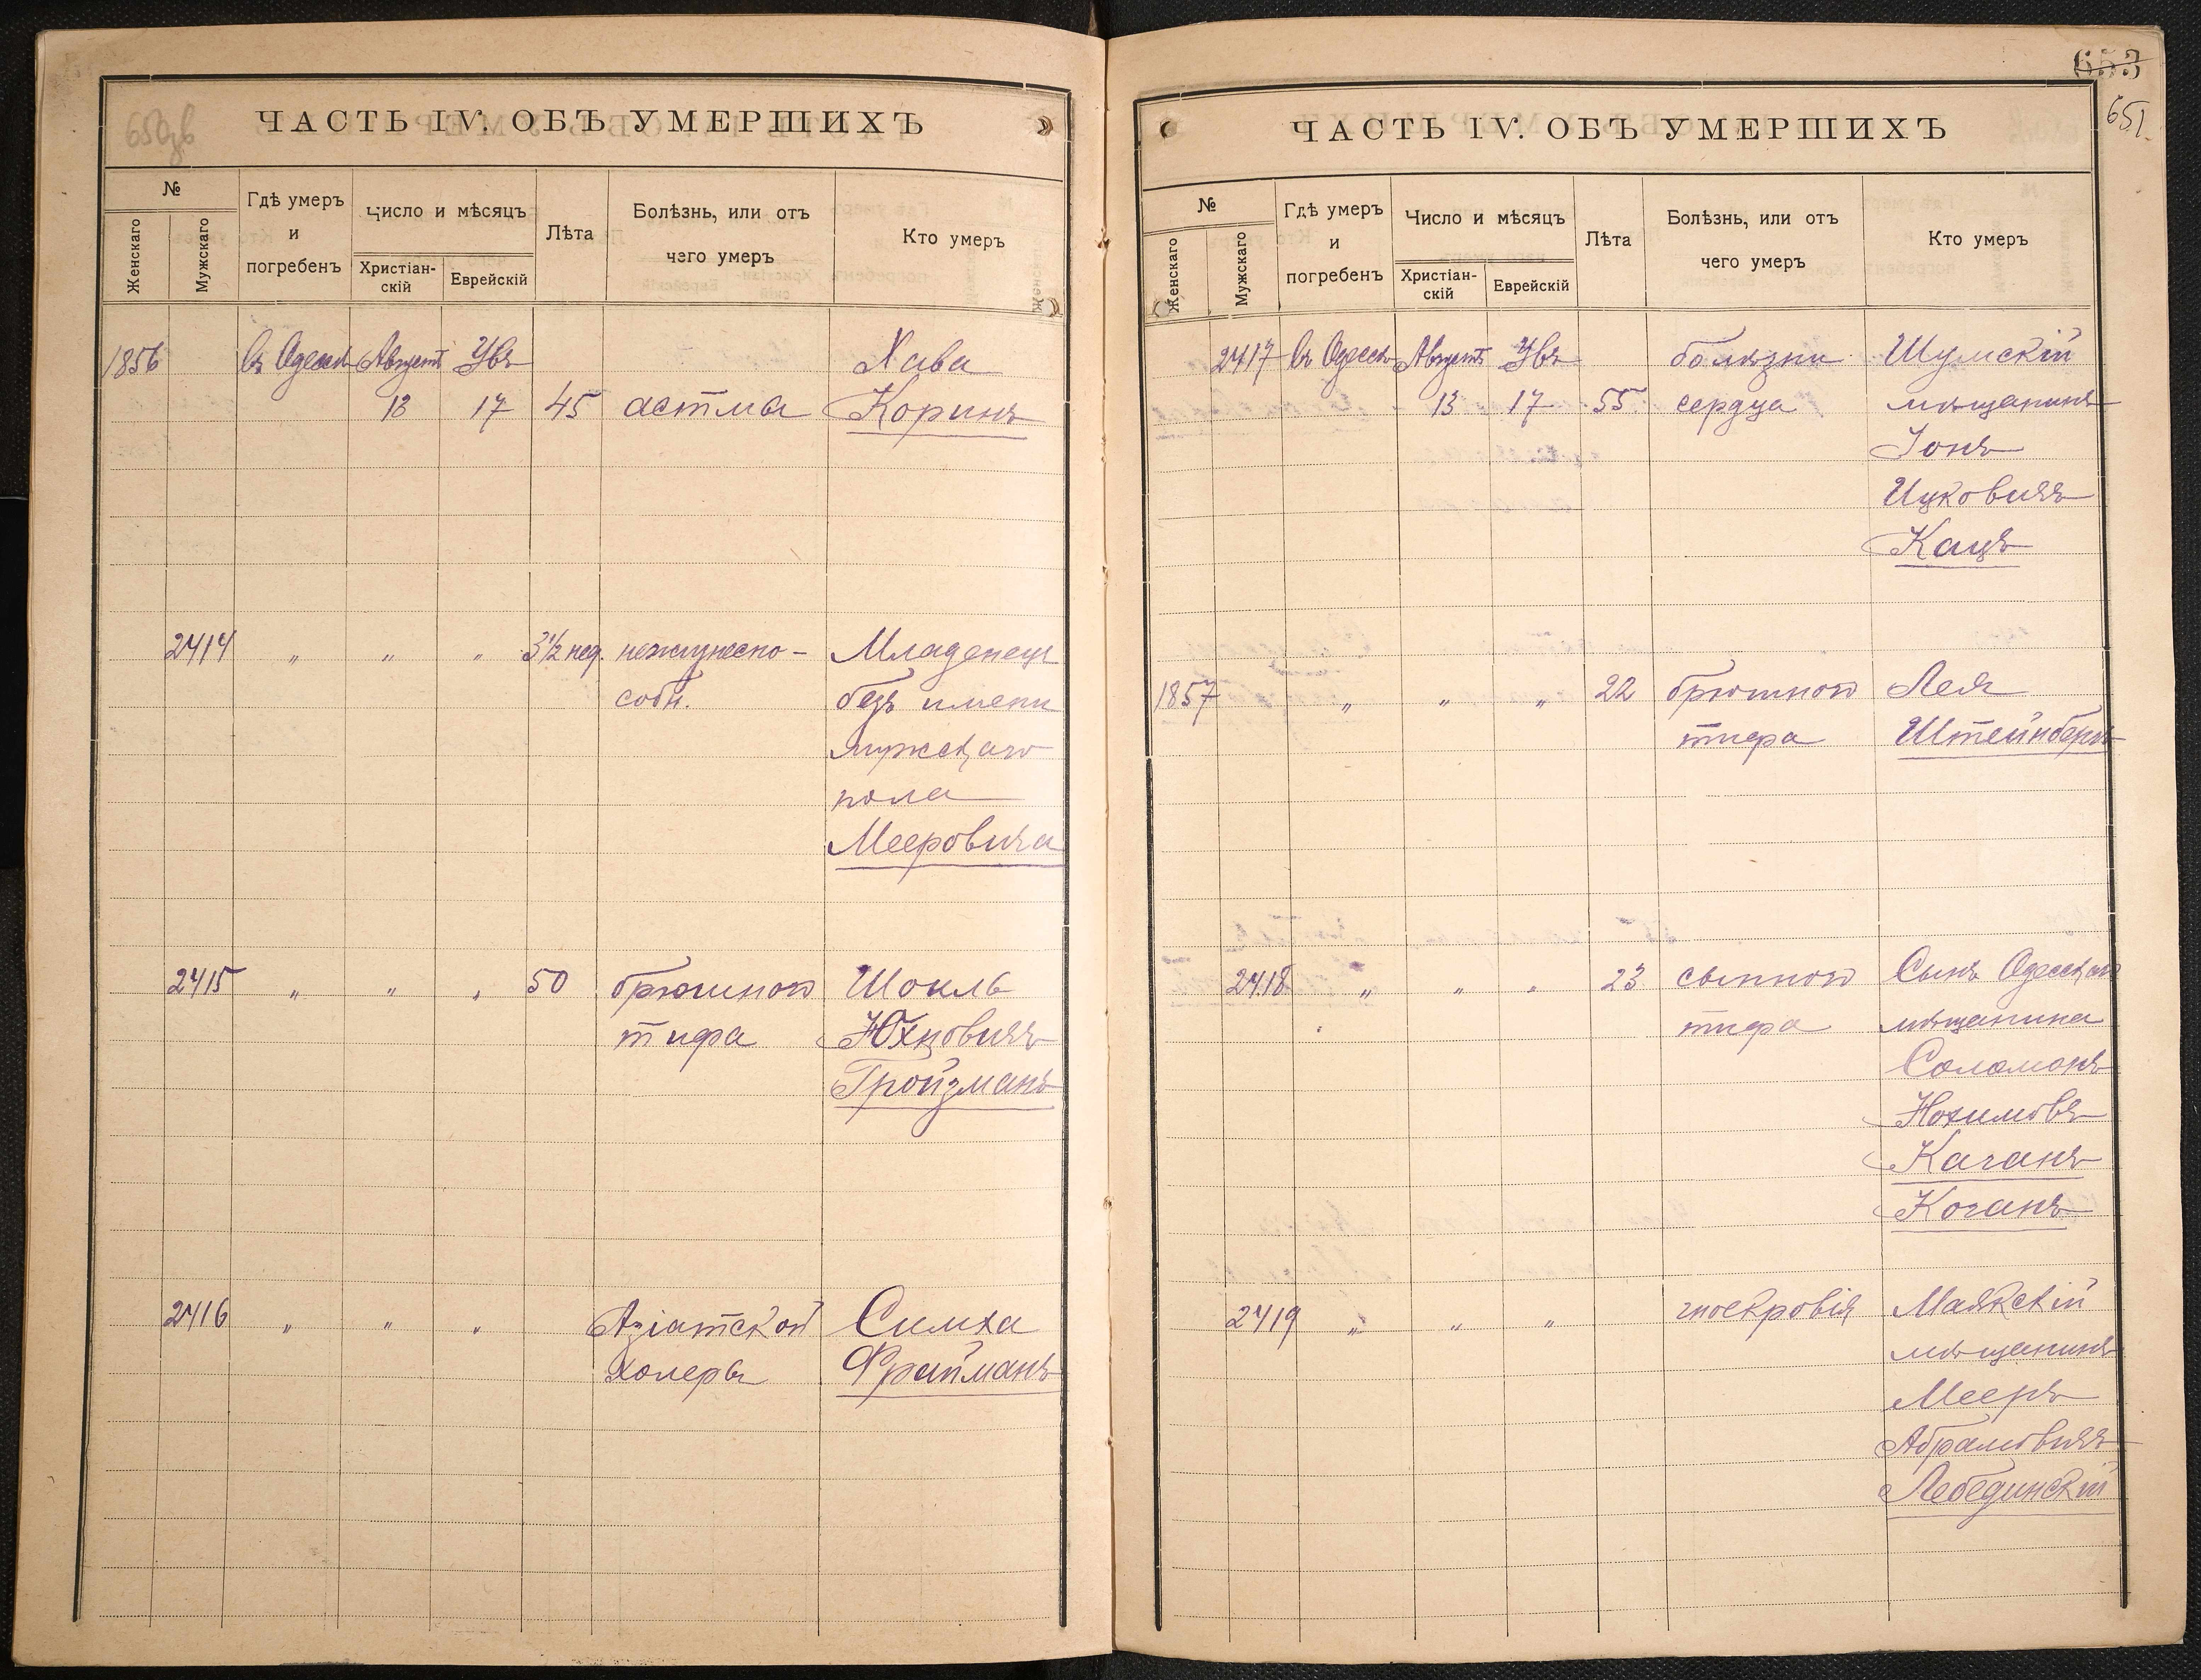 650 зв
ЧАСТЬ IV. ОБЪ УМЕРШИХЪ
№
Женскаго
Мужскаго
Гдѣ умеръ
и
погребенъ
Число и мѣсяцъ
Христіан-
скій
Еврейскій
Лѣта
Болѣзнь, или отъ
чего умеръ
Кто умеръ
1856 Въ Одессѣ Августъ Увъ Хава
13 17 45 астма Коринъ
2414 „ „ „ 3½ нед. нежизнеспо- Младенецъ
собн. безъ имени
мужскаго
пола
Мееровича
2415 „ „ „ 50 брюшного Шоиль
тифа Юхновичъ
Гройзманъ
2416 „ „ „ Азіатской Симха
холеры Фрайманъ
653
651.
ЧАСТЬ IV. ОБЪ УМЕРШИХЪ
№
Женскаго
Мужскаго
Гдѣ умеръ
и
погребенъ
Число и мѣсяцъ
Христіан-
скій
Еврейскій
Лѣта
Болѣзнь, или отъ
чего умеръ
Кто умеръ
2417 Въ Одессѣ Августъ Увъ болѣзни Шумскій
13 17 55 сердца мѣщанинъ
Іонъ
Ицковичъ
Кацъ
1857 „ „ „ 22 брюшного Лея
тифа Штейнбергъ
2418 „ „ „ 23 сыпного Сынъ Одесскаго
тифа мѣщанина
Соломонъ
Нохимовъ
Каганъ
Коганъ
2419 „ „ „ гноекровія Маякскій
мѣщанинъ
Мееръ
Абрамовичъ
Лебединскій